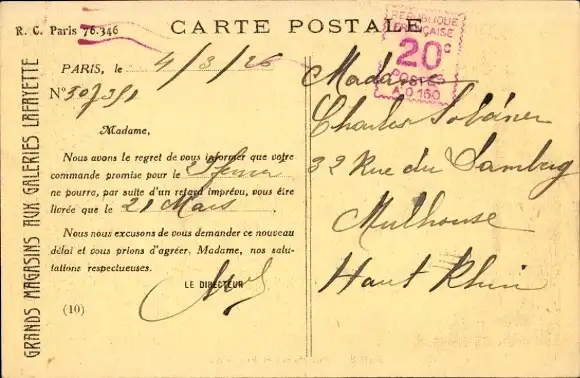 R. C. Paris 76.346
CARTE POSTALE
RÉPUBLIQUE
FRANÇAISE
20c
POSTES
A.0.160
GRANDS MAGASINS AUX GALERIES LAFAYETTE
PARIS, le 4/3/26
N° 307391
Madame,
Nous avons le regret de vous informer que votre
commande promise pour le
ne pourra, par suite d'un retard imprévu, vous être
livrée que le 21 Mars.
Nous nous excusons de vous demander ce nouveau
délai et vous prions d'agréer, Madame, nos salu-
tations respectueuses.
LE DIRECTEUR
(10)
Madame
Charles
32 Rue du
Mulhouse
Haut Rhin